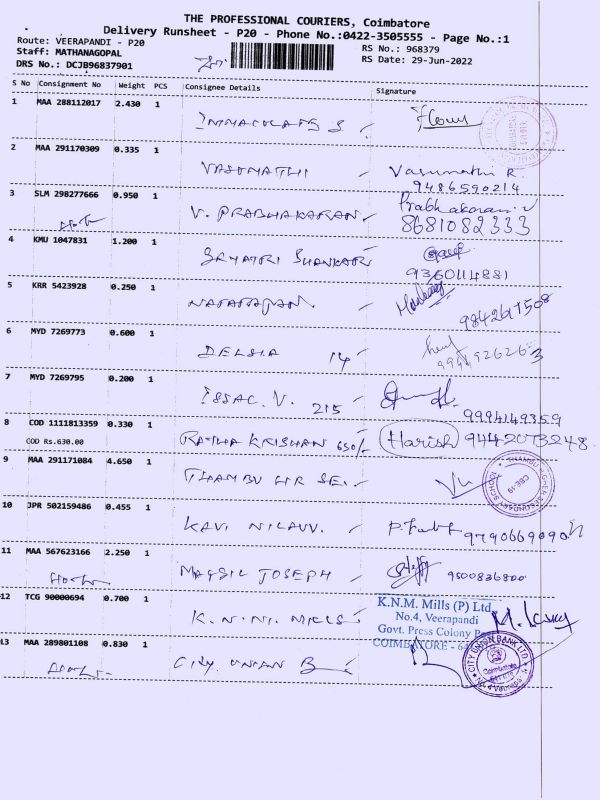 THE PROFESSIONAL COURIERS, Coimbatore
Delivery Runsheet - P20 - Phone No.:0422-3505555 - Page No.:1
Route: VEERAPANDI - P20
RS No.: 968379
Staff: MATHANAGOPAL
RS Date: 29-Jun-2022
DRS No.: DCJB96837901
S No Consignment No Weight PCS Consignee Details Signature
1 MAA 288112017 2.430 1
IMMACULATE S
2 MAA 291170309 0.335 1
VASUMATHI Vasumathi R
9486590214
3 SLM 298277666 0.950 1
V. PRABHAKARAN Prabhakaran.v
8681082333
4 KMU 1047831 1.200 1
GAYATRI SHANKARI
9360114881
5 KRR 5423928 0.250 1
NATARAJAN
6 MYD 7269773 0.600 1
DELSIA 14
7 MYD 7269795 0.200 1
ISSAC. V. 215
9994149359
8 COD 1111813359 0.330 1
COD Rs.630.00
RATHA KRISHAN 630/- Harish 9442073248
9 MAA 291171084 4.650 1
THAMBU HR SE.
10 JPR 502159486 0.455 1
KAVI NILAVV.
9790669090
11 MAA 567623166 2.250 1
MAGGIL JOSEPH 9500836800
12 TCG 90000694 0.700 1
K.N.M. MILLS
K.N.M. Mills (P) Ltd
No.4, Veerapandi
Govt. Press Colony Post
COIMBATORE - 64
13 MAA 289801108 0.830 1
CITY UNION B
CITY UNION BANK LTD
Coimbatore